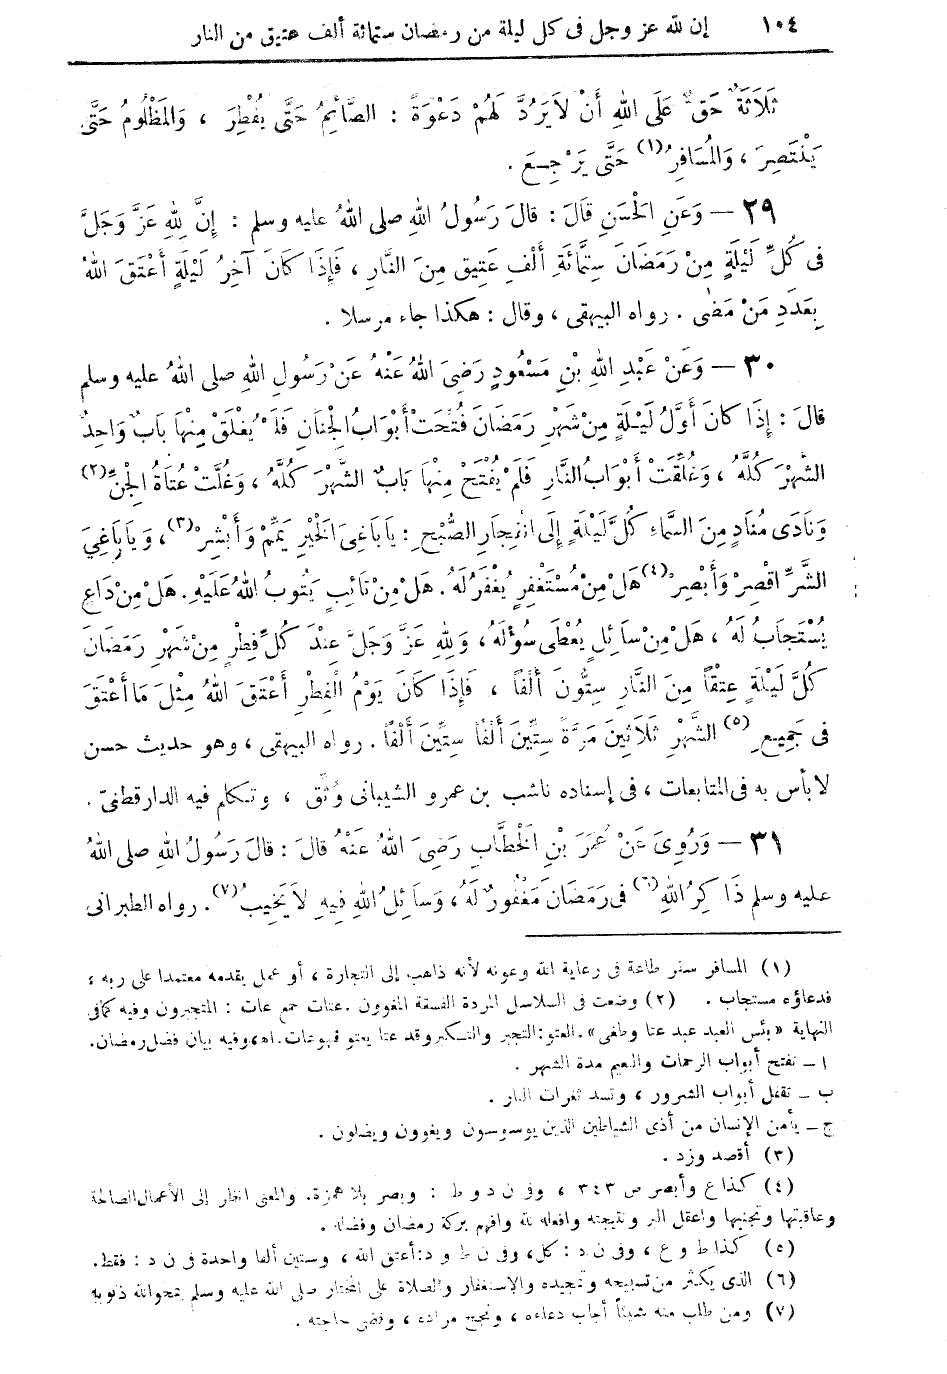 ١٠٤ إن لله عز وجل فى كل ليلة من رمضان ستمائة ألف عتيق من النار
ثَلَاثَةٌ حَقٌّ عَلَى اللهِ أَنْ لَا يَرُدَّ لَهُمْ دَعْوَةً : الصَّائِمُ حَتَّى يُفْطِرَ ، وَالمَظْلُومُ حَتَّى
يَنْتَصِرَ ، وَالمُسَافِرُ(١) حَتَّى يَرْجِعَ .
٢٩ — وَعَنِ الحَسَنِ قَالَ : قالَ رَسُولُ اللهِ صلى اللهُ عليه وسلم : إِنَّ لِلهِ عَزَّ وَجَلَّ
فى كُلِّ لَيْلَةٍ مِنْ رَمَضَانَ سِتَّمَائَةِ أَلْفِ عَتِيقٍ مِنَ النَّارِ ، فَإِذَا كَانَ آخِرُ لَيْلَةٍ أَعْتَقَ اللهُ
بِعَدَدِ مَنْ مَضَى . رواه البيهقى ، وقال : هكذا جاء مرسلا .
٣٠ — وَعَنْ عَبْدِ اللهِ بْنِ مَسْعُودٍ رَضِىَ اللهُ عَنْهُ عَنْ رَسُولِ اللهِ صلى اللهُ عليه وسلم
قالَ : إِذَا كانَ أَوَّلُ لَيْلَةٍ مِنْ شَهْرِ رَمَضَانَ فُتِحَتْ أَبْوَابُ الجِنَانِ فَلَمْ يُغْلَقْ مِنْهَا بَابٌ وَاحِدٌ
الشَّهْرَ كُلَّهُ ، وَغُلِّقَتْ أَبْوَابُ النَّارِ فَلَمْ يُفْتَحْ مِنْهَا بَابٌ الشَّهْرَ كُلَّهُ ، وَغُلَّتْ عُتَاةُ الجِنِّ(٢)
وَنَادَى مُنَادٍ مِنَ السَّمَاءِ كُلَّ لَيْلَةٍ إِلَى انْفِجَارِ الصُّبْحِ : يا بَاغِىَ الخَيْرِ يَمِّمْ وَأَبْشِرْ(٣)، وَيَا بَاغِيَ
الشَّرِّ اقْصِرْ وَأَبْصِرْ(٤) هَلْ مِنْ مُسْتَغْفِرٍ يُغْفَرُ لَهُ . هَلْ مِنْ تَائِبٍ يَتُوبُ اللهُ عَلَيْهِ . هَلْ مِنْ دَاعٍ
يُسْتَجَابُ لَهُ ، هَلْ مِنْ سَائِلٍ يُعْطَى سُؤْلَهُ ، وَلِلهِ عَزَّ وَجَلَّ عِنْدَ كُلِّ فِطْرٍ مِنْ شَهْرِ رَمَضَانَ
كُلَّ لَيْلَةٍ عِتْقاً مِنَ النَّارِ سِتُّونَ أَلْفاً ، فَإِذَا كَانَ يَوْمُ الْفِطْرِ أَعْتَقَ اللهُ مِثْلَ مَا أَعْتَقَ
فى جَمِيعِ(٥) الشَّهْرِ ثَلَاثِينَ مَرَّةً سِتِّينَ أَلْفاً سِتِّينَ أَلْفاً . رواه البيهقى ، وهو حديث حسن
لا بأس به فى المتابعات ، فى إسناده ناشب بن عمرو الشيبانى وُثِّقَ ، وتكلم فيه الدارقطنىّ .
٣١ — وَرُوِىَ عَنْ عُمَرَ بْنِ الخَطَّابِ رَضِىَ اللهُ عَنْهُ قالَ : قالَ رَسُولُ اللهِ صلى اللهُ
عليه وسلم ذَاكِرُ اللهِ(٦) فى رَمَضَانَ مَغْفُورٌ لَهُ ، وَسَائِلُ اللهِ فِيهِ لَا يَخِيبُ(٧). رواه الطبرانى
(١) المسافر سفر طاعة فى رعاية الله وعونه لأنه ذاهب إلى التجارة ، أو عمل يقدمه معتمدا على ربه ؛
فدعاؤه مستجاب . (٢) وضعت فى السلاسل المردة الفسقة المغوون . عتات جمع عات : المتجبرون وفيه كما فى
النهاية «بئس العبد عبد عتا وطغى». العتو: التجبر والتكبر وقد عتا يعتو فهو عات . اه ، وفيه بيان فضل رمضان .
ا — تفتح أبواب الرحمات والنعيم مدة الشهر .
ب — تقفل أبواب الشرور ، وتسد ثغرات النار .
ج — يأمن الإنسان من أذى الشياطين الذين يوسوسون ويغوون ويضلون .
(٣) أقصد وزد .
(٤) كذا ع وأبصر ص ٣٤٣ ، وفى ن د و ط : وبصر بلا همزة . والمعنى انظر إلى الأعمال الصالحة
وعاقبتها وتجنبها واعقل البر ونتيجته وافعله لله وافهم بركة رمضان وفضله .
(٥) كذا ط و ع ، وفى ن د : كل، وفى ن ط و د: أعتق الله ، وستين ألفا واحدة فى ن د : فقط .
(٦) الذى يكثر من تسبيحه وتمجيده والاستغفار والصلاة على المختار صلى الله عليه وسلم يمحو الله ذنوبه
(٧) ومن طلب منه شيئاً أجاب دعاءه ، ونجح مراده ، وقضى حاجته .